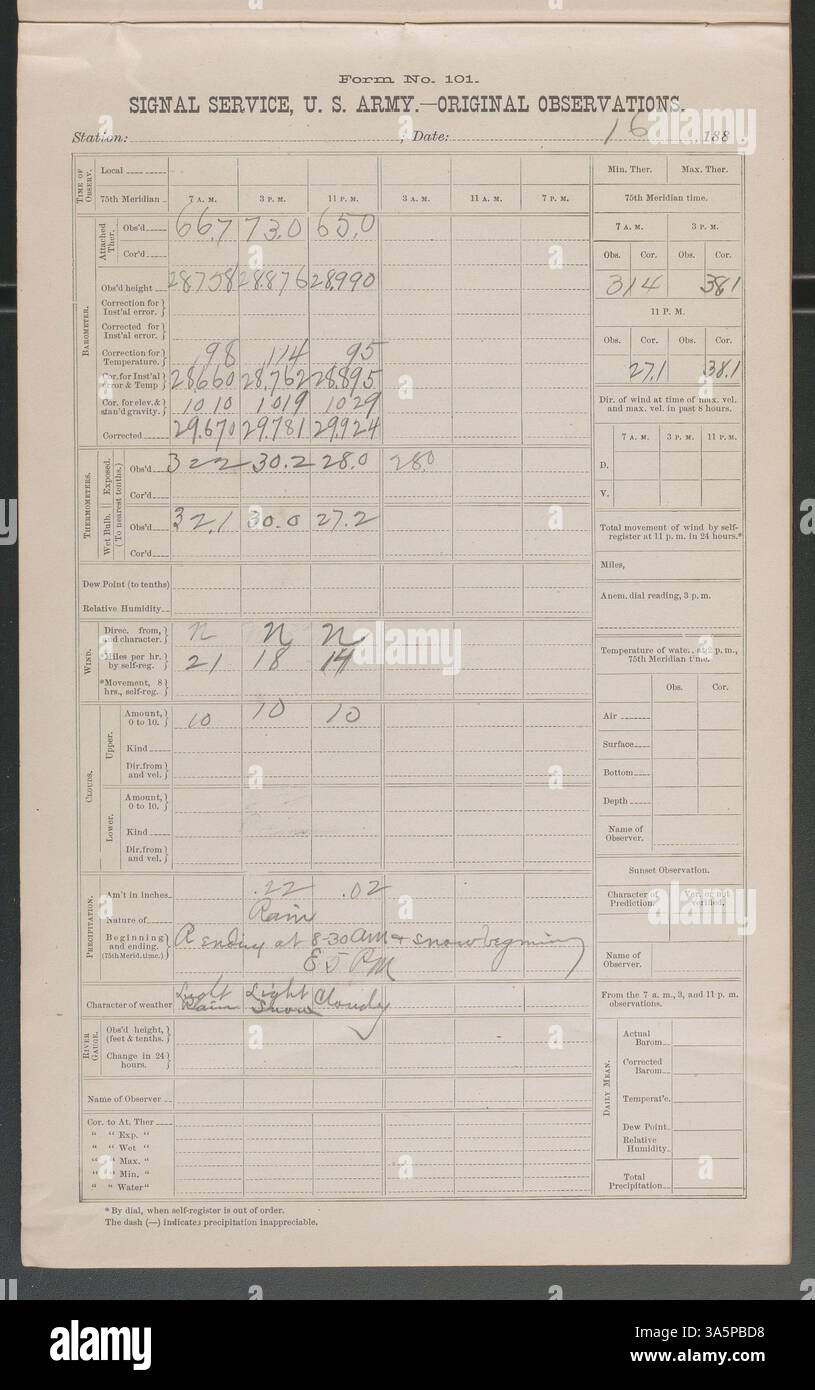 Form No. 101.
SIGNAL SERVICE, U. S. ARMY.—ORIGINAL OBSERVATIONS.
Station: ; Date: 16 , 188 .
TIME OF OBSERV.
Local
75th Meridian 7 A. M. 3 P. M. 11 P. M. 3 A. M. 11 A. M. 7 P. M.
BAROMETER.
Attached Ther.
Obs'd 66.7 73.0 65.0
Cor'd
Obs'd height 28758 28.876 28.990
Correction for Inst'al error.
Corrected for Inst'al error.
Correction for Temperature. .98 114 95
Cor. for Inst'al error & Temp 28.660 28.762 28.895
Cor. for elev. & stan'd gravity. 1010 1019 1029
Corrected 29.670 29.781 29.924
THERMOMETERS.
Exposed.
Wet Bulb.
(To nearest tenths.)
Obs'd 322 30.2 28.0 28.0
Cor'd
Obs'd 32.1 30.0 27.2
Cor'd
Dew Point (to tenths)
Relative Humidity
WIND.
Direc. from, and character. n n n
*Miles per hr. by self-reg. 21 18 14
*Movement, 8 hrs., self-reg.
CLOUDS.
Upper.
Amount, 0 to 10. 10 10 10
Kind
Dir. from and vel.
Lower.
Amount, 0 to 10.
Kind
Dir. from and vel.
PRECIPITATION.
Am't in inches .22 .02
Nature of Rain
Beginning and ending. (75th Merid. time.) R ending at 8-30 am + snow begining
E 5 PM
Character of weather Light Rain Light Snow Cloudy
RIVER GAUGE.
Obs'd height, (feet & tenths.)
Change in 24 hours.
Name of Observer
Cor. to At. Ther
" " Exp. "
" " Wet "
" " Max. "
" " Min. "
" " Water "
* By dial, when self-register is out of order.
The dash (—) indicates precipitation inappreciable.
Min. Ther. Max. Ther.
75th Meridian time.
7 A. M. 3 P. M.
Obs. Cor. Obs. Cor.
314 381
11 P. M.
Obs. Cor. Obs. Cor.
27.1 38.1
Dir. of wind at time of max. vel. and max. vel. in past 8 hours.
7 A. M. 3 P. M. 11 P. M.
D.
V.
Total movement of wind by self-register at 11 p. m. in 24 hours.*
Miles,
Anem. dial reading, 3 p. m.
Temperature of water, at 2 p. m., 75th Meridian time.
Obs. Cor.
Air
Surface
Bottom
Depth
Name of Observer.
Sunset Observation.
Character of Prediction. Ver. or not verified.
Name of Observer.
From the 7 a. m., 3, and 11 p. m. observations.
DAILY MEAN.
Actual Barom
Corrected Barom
Temperat'e.
Dew Point
Relative Humidity
Total Precipitation
alamy
a
alamy
3A5PBD8
www.alamy.com